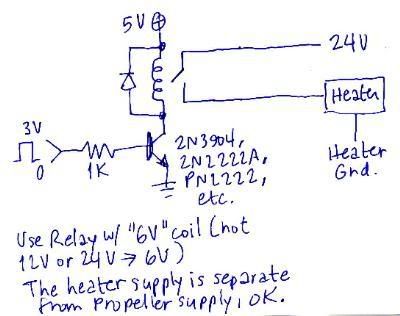 5V
24V
Heater
3V
0
1K
2N3904,
2N2222A,
PN2222,
etc.
Heater
Gnd.
Use Relay w/ "6V" coil (not
12V or 24V → 6V)
The heater supply is separate
from Propeller supply, OK.